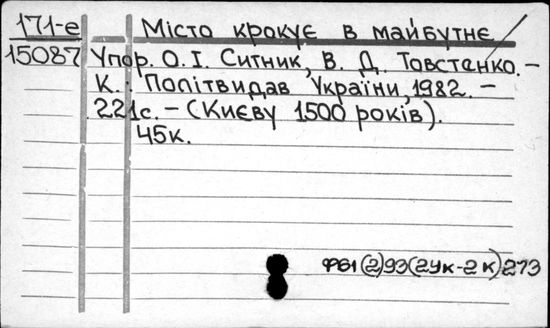 171-е Місто крокує в майбутнє
15087 Упор. О. І. Ситник, В. Д. Товстенко.–
К.: Політвидав України, 1982. –
221с. – (Києву 1500 років).
45к.
ФБ1(2)93(2Ук-2К)273